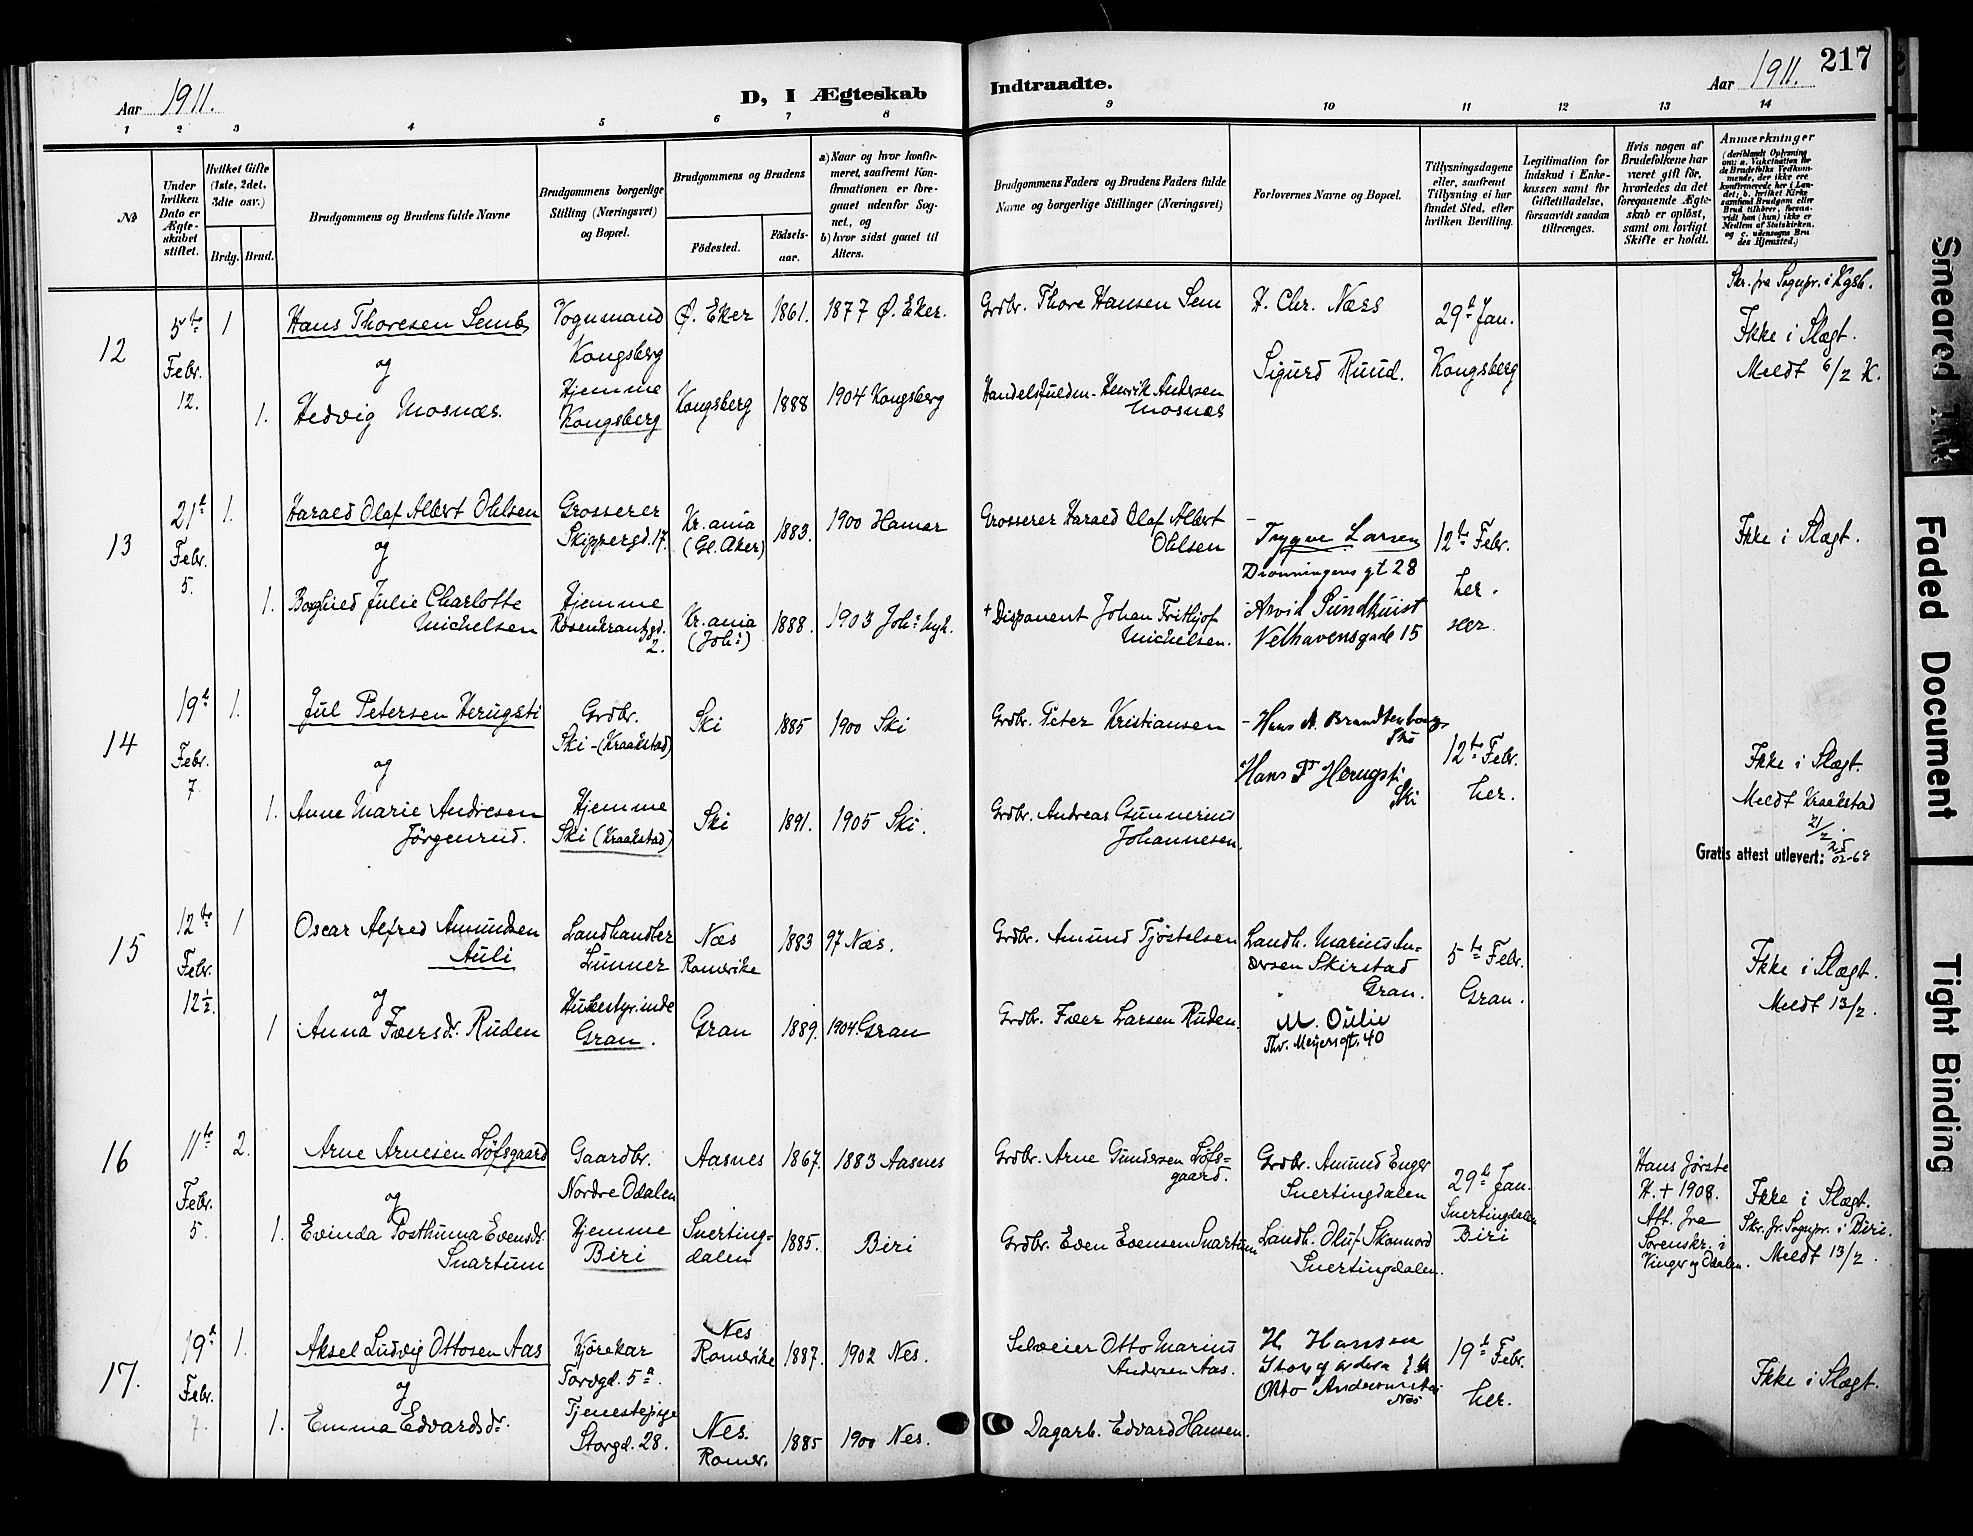 217
Aar 1911.
D, I Ægteskab
Indtraadte.
Aar 1911.
1 2 3 4 5 6 7 8 9 10 11 12 13 14
No
Under hvilken Dato er Ægteskabet stiftet.
Hvilket Gifte (1ste, 2det, 3dte osv.)
Brdg. Brud.
Brudgommens og Brudens fulde Navne
Brudgommens borgerlige Stilling (Næringsvei) og Bopæl.
Brudgommens og Brudens
Födested.
Födsels-aar.
a) Naar og hvor konfirmeret, saafremt Konfirmationen er foregaaet udenfor Sognet, og
b) hvor sidst gaaet til Alters.
Brudgommens Faders og Brudens Faders fulde Navne og borgerlige Stillinger (Næringsvei)
Forlovernes Navne og Bopæl.
Tillysningsdagene eller, saafremt Tillysning ei har fundet Sted, efter hvilken Bevilling.
Legitimation for Indskud i Enkekassen samt for Giftetilladelse, forsaavidt saadan tiltrænges.
Hvis nogen af Brudefolkene har været gift før, hvorledes da det foregaaende Ægteskab er oplöst, samt om lovligt Skifte er holdt.
Anmærkninger
(deriblandt Oplysning om: a. Vakcination for de Brudefolks Vedkommende, der ikke ere konfirmerede her i Landet; b. hvilket Kirkesamfund Brudgom eller Brud tilhörer, forsaavidt han (hun) ikke er Medlem af Statskirken, og c. udensogns Brudes Hjemsted.)
12
5te Febr. 12.
1
Hans Thoresen Semb
og
1. Hedvig Mosnæs.
Vognmand
Kongsberg
Hjemme
Kongsberg
Ø. Eker 1861. 1877 Ø. Eker.
Kongsberg 1888 1904 Kongsberg
Grdbr. Thore Hansen Sem
Handelsfuldm. Henrik Andersen
Mosnæs
H. Chr. Næss
Sigurd Ruud.
29d Jan.
Kongsberg
Skr. fra Sognpr. i Kgsb.
Ikke i Slægt.
Meldt 6/2 K.
13
21d Febr. 5.
1.
Harald Olaf Albert Ohlsen
og
1. Borghild Julie Charlotte
Michelsen
Grosserer
Skippergd. 17.
Hjemme
Rosenkrantzgd.
2.
Kr.ania
(Gl. Aker)
1883. 1900 Hamar
Kr.ania
(Joh:)
1888. 1903 Joh: kyk.
Grosserer Harald Olaf Albert
Ohlsen
+ Disponent Johan Frithjof
Michelsen.
Trygve Larsen
Dronningens gt 28
Arvid Sundkvist
Velhavensgade 15
12te Febr.
her.
her.
Ikke i Slægt.
14
19d Febr. 7.
1.
Jul Petersen Herugsti
og
1. Anne Marie Andresen
Jörgenrud.
Grdbr.
Ski - (Kraakstad)
Hjemme
Ski (Kraakstad)
Ski 1885 1900 Ski
Ski 1891. 1905 Ski.
Grdbr. Peter Kristiansen
Grdbr. Andreas Gunnerius
Johannesen.
- Hans A. Brandtenborg
Ski
Hans P Herugsti
Ski
12te Febr.
her.
Ikke i Slægt.
Meldt Kraakstad
21/2.
Gratis attest utlevert: 25/02-69
15
12te Febr. 12½.
1
Oscar Alfred Amundsen
Auli
og
1 Anna Fversdr. Ruden
Landhandler
Lunner
Husbestyrinde
Gran.
Næs
Romerike
1883 97 Næs.
Gran 1889. 1904. Gran
Grdbr. Amund Tjöstelsen
Grdbr. Iver Larsen Ruden.
Landh. Marius An-
dersen Skirstad
Gran.
M. Oulie
Thv. Meyersgt. 40
5te Febr.
Gran.
Ikke i Slægt.
Meldt 13/2.
16
11te Febr. 5.
2.
Arne Arnesen Löfsgaard
og
1. Evinda Posthuma Evensdr.
Snartum
Gaardbr.
Nordre Odalen
Hjemme
Biri
Aasnes 1867. 1883 Aasnes
Snerting-
dalen
1885. Biri
Grdbr. Arne Gundersen Löfs-
gaard.
Grdbr. Even Evensen Snartum
Grdbr. Amund Enger
Snertingdalen
Landh. Oluf Skonnord
Snertingdalen.
29d Jan.
Snertingdalen
Biri
Hans förste
H. + 1908.
Att. fra
Sorenskr. i
Vinger og Odalen.
Ikke i Slægt.
Skr. fr. Sognpr. i Biri.
Meldt 13/2.
17.
19d Febr. 7.
1.
Aksel Ludvig Ottosen Aas
og
1. Emma Edvardsdr.
Kjörekar
Torvgd. 5a.
Tjenestepige
Storgd. 28.
Nes
Romerike
1887. 1902 Nes.
Nes.
Romer.
1885 1900 Nes.
Selveier Otto Marius
Andersen Aas.
Dagarb. Edvard Hansen.
H Hansen
Otto Andersen
Nes
19d Febr.
her.
Ikke i Slægt.
Smeared Ink
Faded Document
Tight Binding